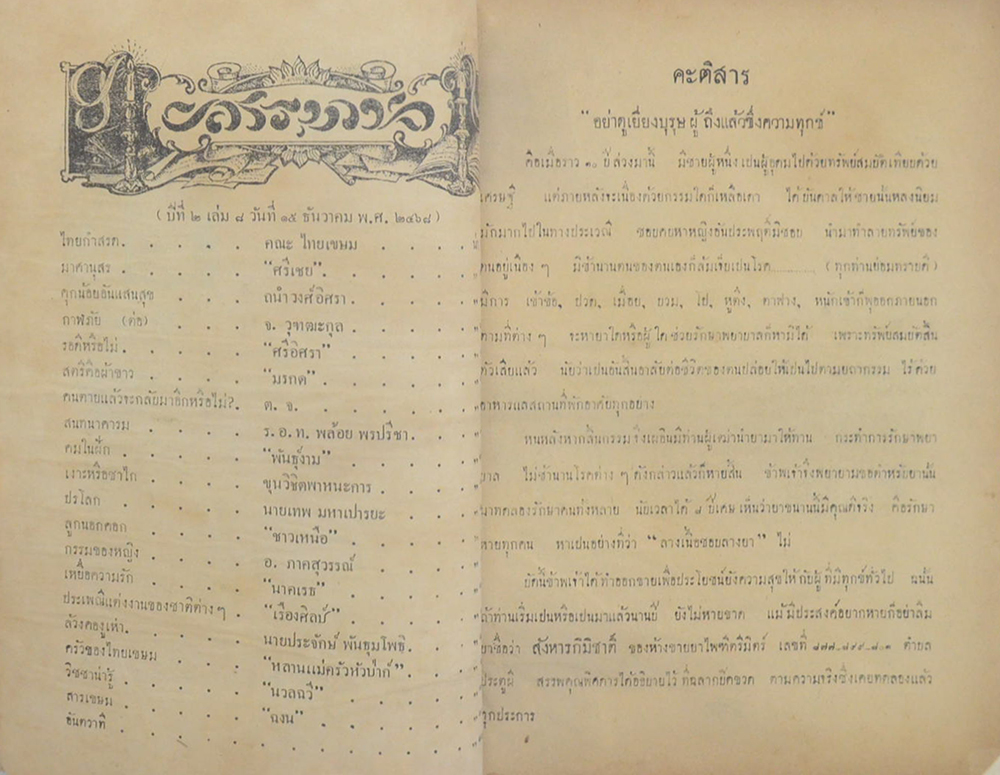 สารบาญ
( ปีที่ ๒ เล่ม ๘ วันที่ ๑๕ ธันวาคม พ.ศ. ๒๔๖๘ )
ไทยกำสรด . . . . คณะ ไทยเขษม
มาตานุสร . . . . "ศรีเชย"
คุกน้อยอันแสนสุข . . . ถนำวงศ์อิศรา
กาฬภัย (ต่อ) . . . จ. วุฑฒะกุล
รอดีหรือไม่ . . . . "ศรีอิศรา"
สตรีคือผ้าขาว . . . "มรกต"
คนตายแล้วจะกลับมาอีกหรือไม่? . ต. จ.
สนทนาคารม . . . . ร.อ.ท. พล้อย พรปรีชา
คมในฝัก . . . . "พันธุ์งาม"
เงาะหรือซาไก . . . ขุนวิชิตพาหนะการ
ปรโลก . . . . นายเทพ มหาเปารยะ
ลูกนอกคอก . . . . "ชาวเหนือ"
กรรมของหญิง . . . อ. ภาคสุวรรณ์
เหยื่อความรัก . . . "นาคเรธ"
ประเพณีแต่งงานของชาติต่าง ๆ . "เรืองศิลป์"
ล้วงคองูเห่า . . . . นายประจักษ์ พันธุมโพธิ
ครัวของไทยเขษม . . . "หลานแม่ครัวหัวป่าก์"
วิชชาน่ารู้ . . . . "นวลฉวี"
สารเขษม . . . . "ฉงน"
อันตราที . . . .
คะติสาร
"อย่าดูเยี่ยงบุรุษ ผู้ ถึงแล้วซึ่งความทุกข์"
คือเมื่อราว ๓๐ ปีล่วงมานี้ มีชายผู้หนึ่งเป็นผู้อุดมไปด้วยทรัพย์สมบัติเทียบด้วย
เศรษฐี แต่ภายหลังจะเนื่องด้วยกรรมใดก็เหลือเดา ได้บันดาลให้ชายนั้นหลงนิยม
มักมากไปในทางประเวณี ชอบคบหาหญิงอันประพฤติมิชอบ นำมาทำลายทรัพย์ของ
ตนอยู่เนือง ๆ มิช้านานตนของตนเองก็ล้มเจ็บเป็นโรค........... (ทุกท่านย่อมทราบดี)
มีการ เข้าข้อ, ปวด, เมื่อย, บวม, โป, หูตึง, ตาฟาง, หนักเข้าก็พุออกภายนอก
ตามที่ต่าง ๆ จะหายาใดหรือผู้ใดช่วยรักษาพยาบาลก็หามิได้ เพราะทรัพย์สมบัติสิ้น
ตัวเสียแล้ว นับว่าเป็นอันสิ้นอาลัยต่อชีวิตของตนปล่อยให้เป็นไปตามยถากรรม ไร้ด้วย
อาหารแลสถานที่พักอาศัยทุกอย่าง
หนหลังหากสิ้นกรรม จึ่งเผอินมีท่านผู้เฒ่านำยามาให้ทาน กระทำการรักษาพยา
บาล ไม่ช้านานโรคต่าง ๆ ดังกล่าวแล้วก็หายสิ้น ข้าพเจ้าจึ่งพยายามขอตำหรับยานั้น
มาทดลองรักษาคนทั้งหลาย นับเวลาได้ ๘ ปีเศษ เห็นว่ายาขนานนี้มีคุณดีจริง คือรักษา
หายทุกคน หาเป็นอย่างที่ว่า "ลางเนื้อชอบลางยา" ไม่
บัดนี้ข้าพเจ้าได้ทำออกขายเพื่อประโยชน์ยังความสุขให้ กับผู้ ที่มีทุกข์ทั่วไป ฉนั้น
ถ้าท่านเริ่มเป็นหรือเป็นมาแล้วนานปี ยังไม่หายขาด แม้มีประสงค์อยากหายก็อย่าลืม
ยาชื่อว่า สังหารกิมิชาติ ของห้างขายยาไพฑิตริมิตร์ เลขที่ ๘๗๗-๘๙๙-๘๐๑ ตำบล
ประตูผี สรรพคุณพิศดารได้อธิบายไว้ ที่ฉลากปิดขวด ตามความจริงซึ่งเคยทดลองแล้ว
ทุกประการ